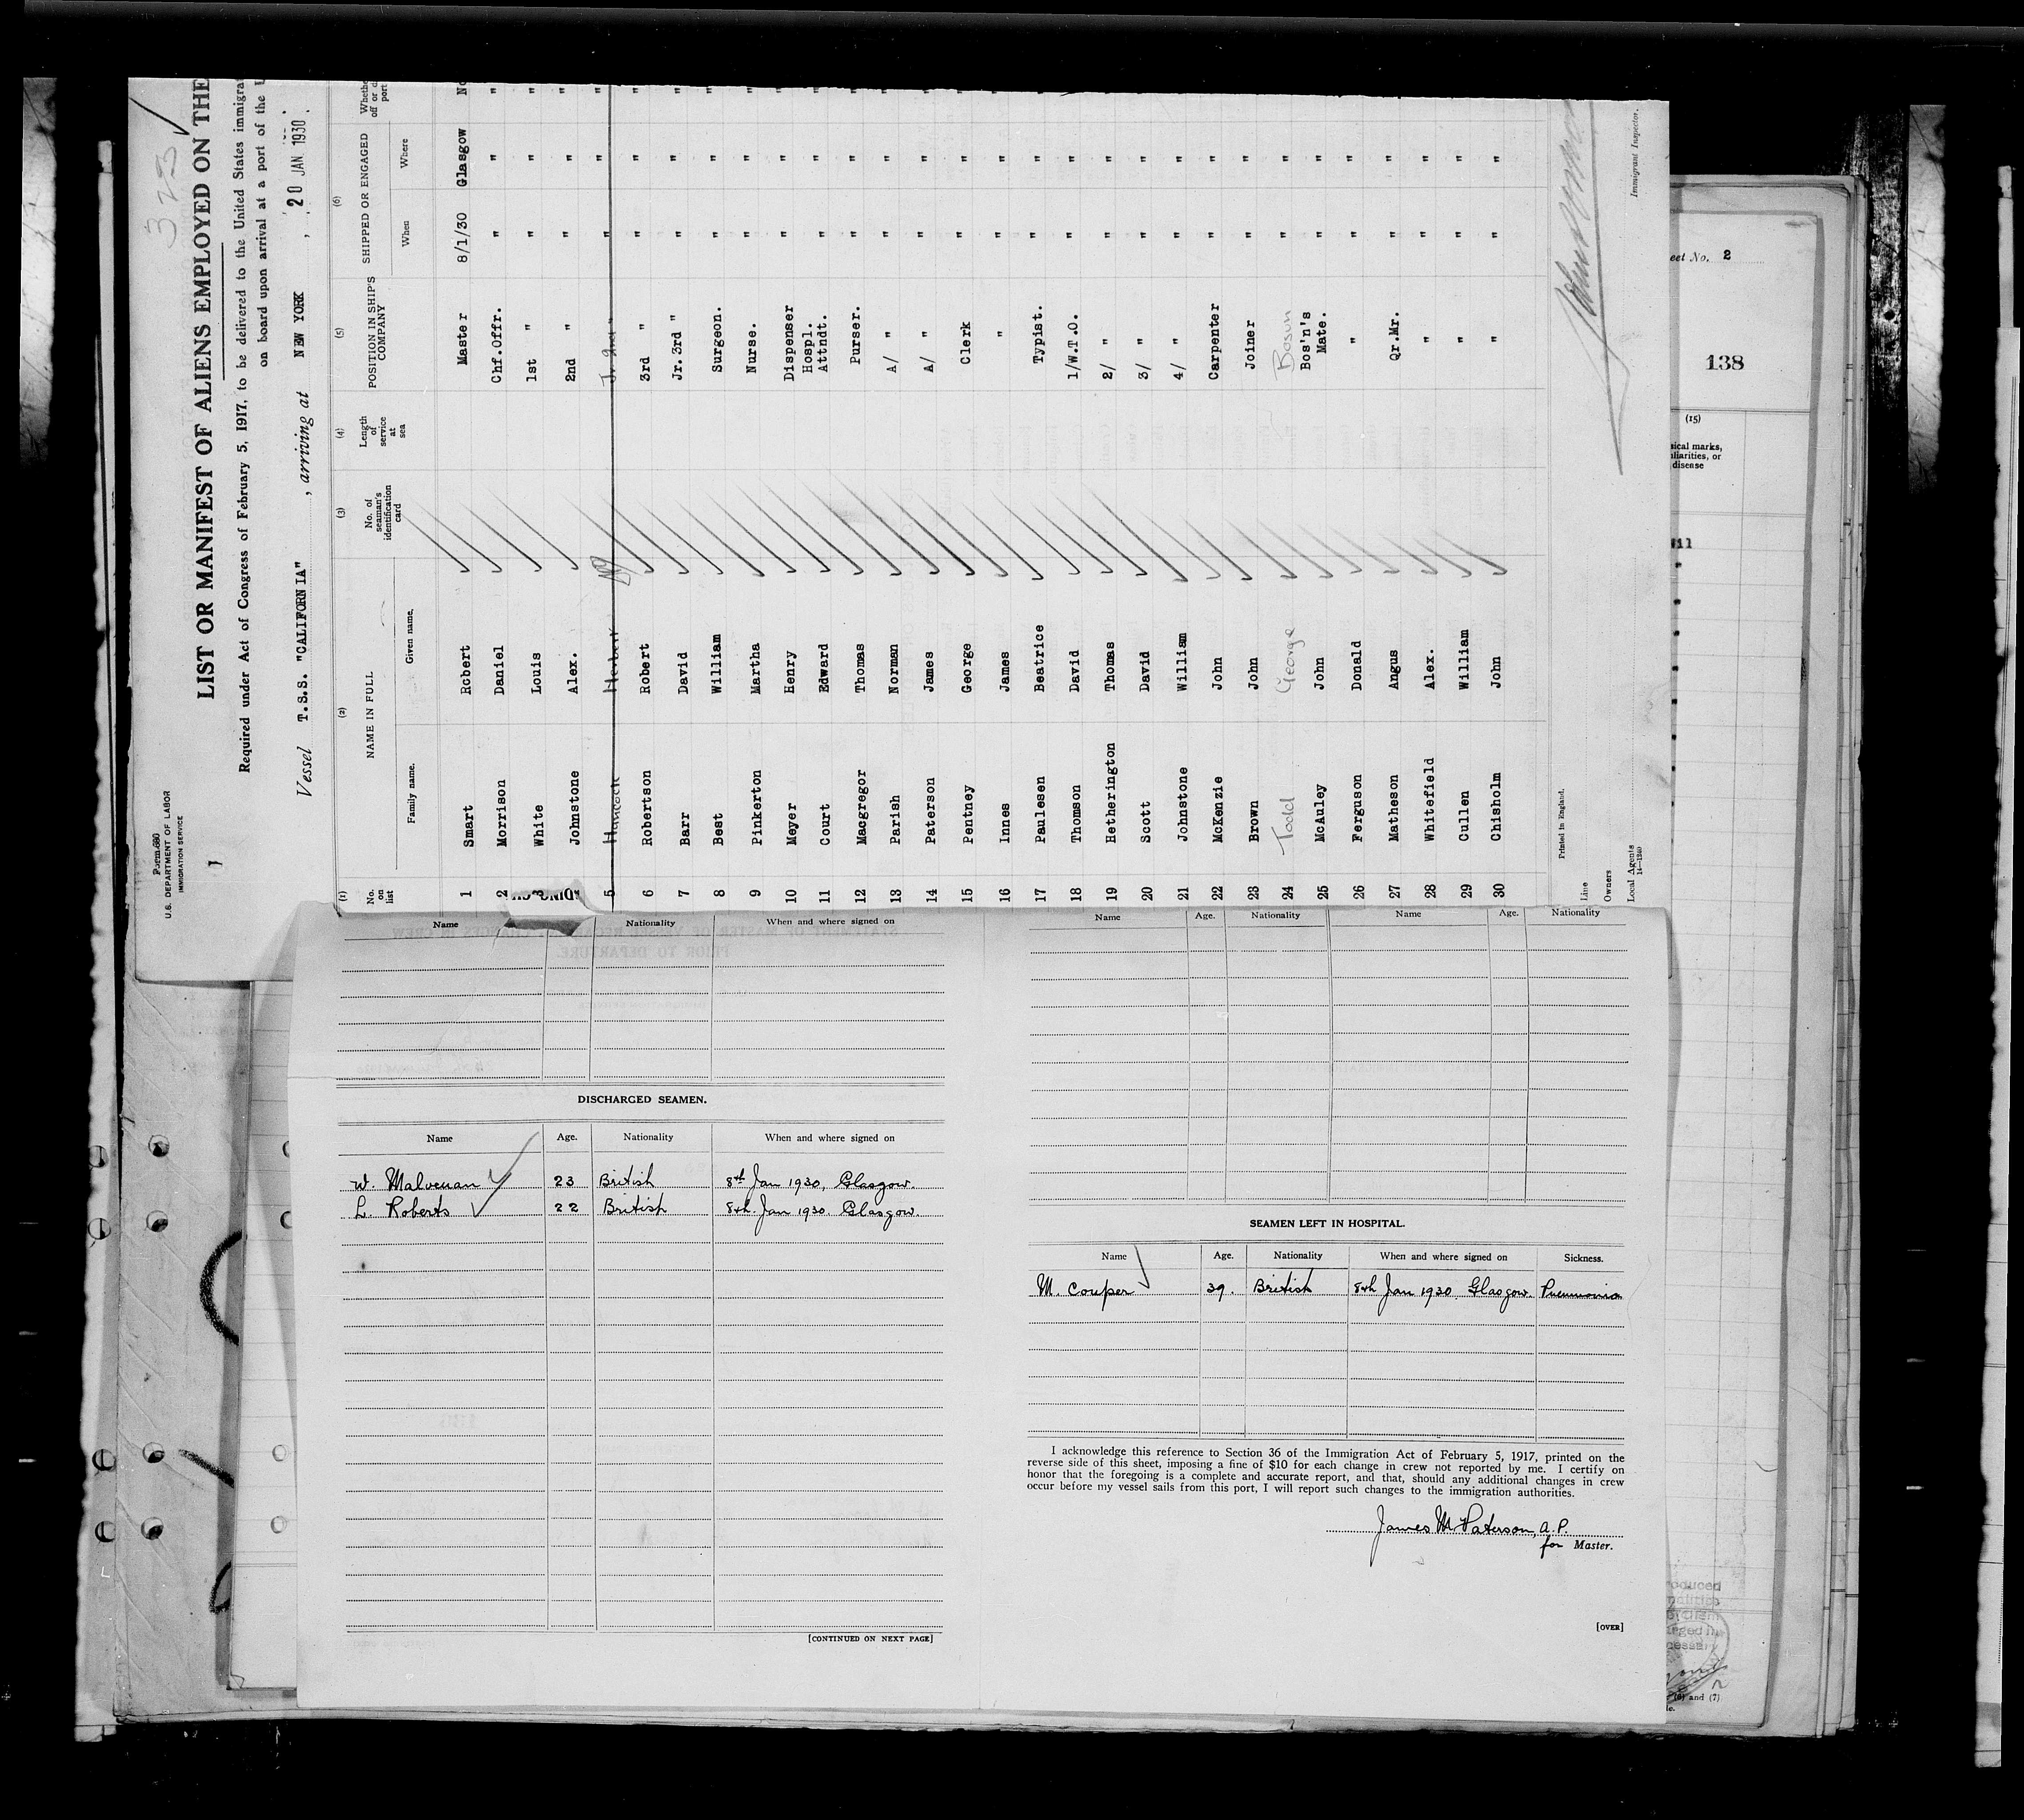 325
Form 680
U.S. DEPARTMENT OF LABOR
IMMIGRATION SERVICE
1
LIST OR MANIFEST OF ALIENS EMPLOYED ON THE
Required under Act of Congress of February 5, 1917, to be delivered to the United States immigra
on board upon arrival at a port of the U
Vessel T.S.S. "CALIFORNIA", arriving at NEW YORK, 20 JAN 1930.
(1) (2) (3) (4) (5) (6)
No. on list NAME IN FULL No. of seaman's identification card Length of service at sea POSITION IN SHIP'S COMPANY SHIPPED OR ENGAGED
Family name. Given name. When Where
1 Smart Robert Master 8/1/30 Glasgow No
2 Morrison Daniel Chf.Offr. " " "
3 White Louis 1st " " " "
4 Johnstone Alex. 2nd " " " "
5 " " "
6 Robertson Robert 3rd " " " "
7 Barr David Jr.3rd " " " "
8 Best William Surgeon. " " "
9 Pinkerton Martha Nurse. " " "
10 Meyer Henry Dispenser " " "
11 Court Edward Hospl. Attndt. " " "
12 Macgregor Thomas Purser. " " "
13 Parish Norman A/ " " " "
14 Paterson James A/ " " " "
15 Pentney George Clerk " " "
16 Innes James " " " "
17 Paulesen Beatrice Typist. " " "
18 Thomson David 1/W.T.O. " " "
19 Hetherington Thomas 2/ " " " "
20 Scott David 3/ " " " "
21 Johnstone William 4/ " " " "
22 McKenzie John Carpenter " " "
23 Brown John Joiner " " "
24 Todd George Bosun " " "
25 McAuley John Bos'n's Mate. " " "
26 Ferguson Donald " " " "
27 Matheson Angus Qr.Mr. " " "
28 Whitefield Alex. " " " "
29 Cullen William " " " "
30 Chisholm John " " " "
Printed in England.
Line
Owners
Local Agents
14—1240
Immigrant Inspector.
Name Nationality When and where signed on
DISCHARGED SEAMEN.
Name Age. Nationality When and where signed on
W. Malvenan 23 British 8th Jan 1930, Glasgow.
L. Roberts 22 British 8th. Jan 1930. Glasgow.
[CONTINUED ON NEXT PAGE]
Name Age. Nationality Name Age. Nationality
SEAMEN LEFT IN HOSPITAL.
Name Age. Nationality When and where signed on Sickness.
M. Couper 39. British 8th Jan 1930. Glasgow. Pneumonia
I acknowledge this reference to Section 36 of the Immigration Act of February 5, 1917, printed on the
reverse side of this sheet, imposing a fine of $10 for each change in crew not reported by me. I certify on
honor that the foregoing is a complete and accurate report, and that, should any additional changes in crew
occur before my vessel sails from this port, I will report such changes to the immigration authorities.
James M. Paterson, A.P.
for Master.
[OVER]
eet No. 2
138
(15)
sical marks,
uliarities, or
disease
(6) and (7)